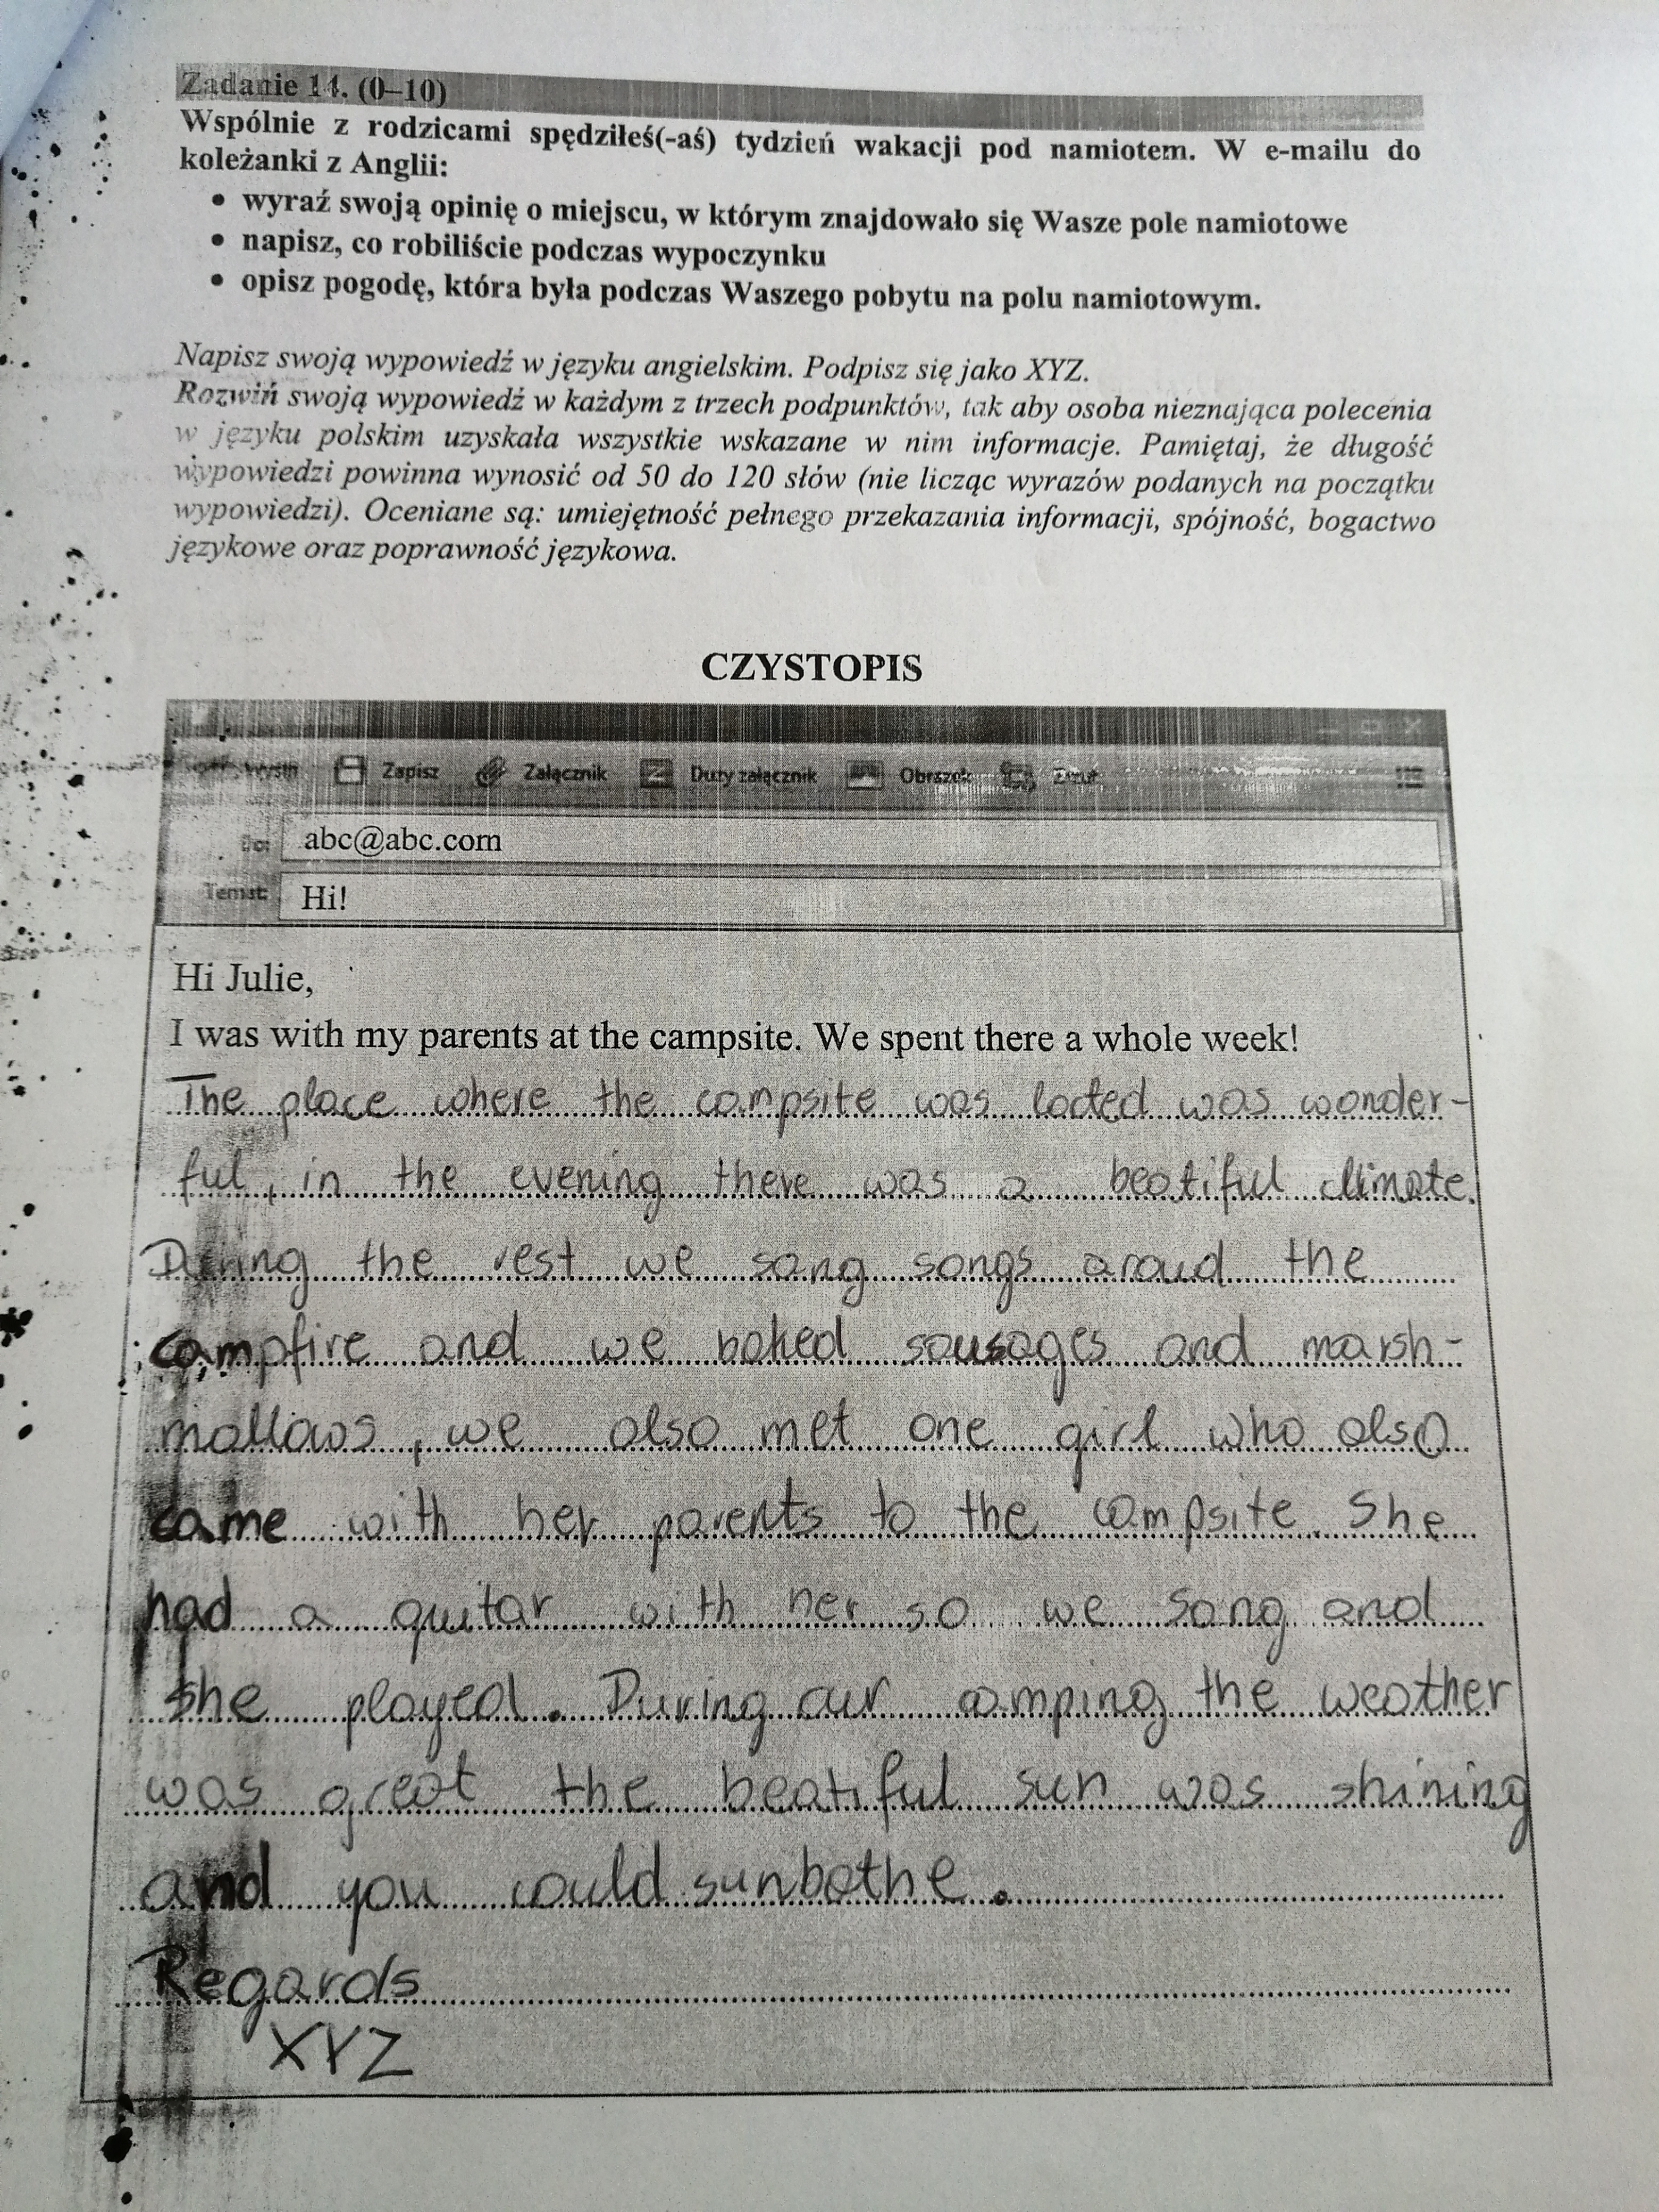 Zadanie 14. (0–10)
Wspólnie z rodzicami spędziłeś(-aś) tydzień wakacji pod namiotem. W e-mailu do
koleżanki z Anglii:
• wyraź swoją opinię o miejscu, w którym znajdowało się Wasze pole namiotowe
• napisz, co robiliście podczas wypoczynku
• opisz pogodę, która była podczas Waszego pobytu na polu namiotowym.
Napisz swoją wypowiedź w języku angielskim. Podpisz się jako XYZ.
Rozwiń swoją wypowiedź w każdym z trzech podpunktów, tak aby osoba nieznająca polecenia
w języku polskim uzyskała wszystkie wskazane w nim informacje. Pamiętaj, że długość
wypowiedzi powinna wynosić od 50 do 120 słów (nie licząc wyrazów podanych na początku
wypowiedzi). Oceniane są: umiejętność pełnego przekazania informacji, spójność, bogactwo
językowe oraz poprawność językowa.
CZYSTOPIS
Zapisz Załącznik Duży załącznik Obrazek
Do: abc@abc.com
Temat: Hi!
Hi Julie,
I was with my parents at the campsite. We spent there a whole week!
The place where the campsite was lacted was wonder-
ful, in the evening there was a beatiful climate.
During the rest we sang songs aroud the
campfire and we baked sausages and marsh-
mallows, we also met one girl who also
came with her parents to the campsite. She
had a guitar with her so we sang and
she played. During our camping the weather
was great the beatiful sun was shining
and you could sunbathe.
Regards
XYZ